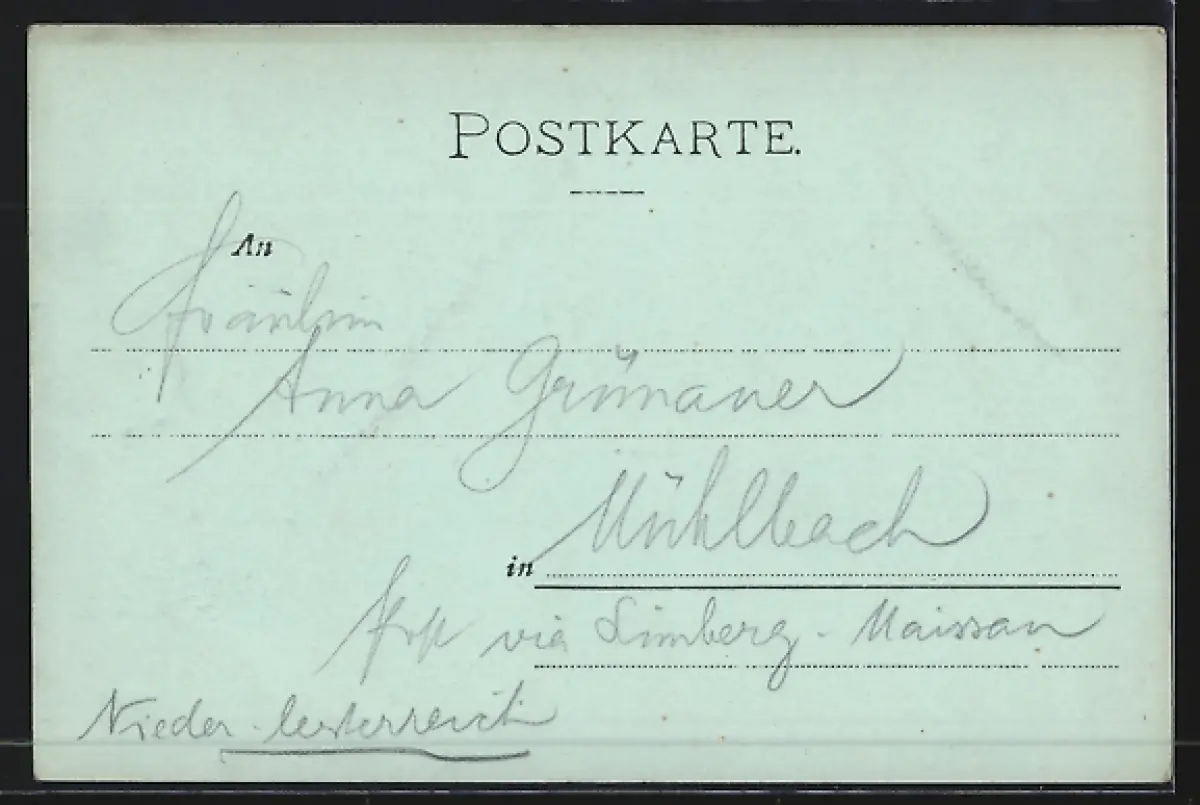 POSTKARTE.
An
Fräulein
Anna Grünauer
in Mühlbach
Post via Limberg - Maissau
Nieder-